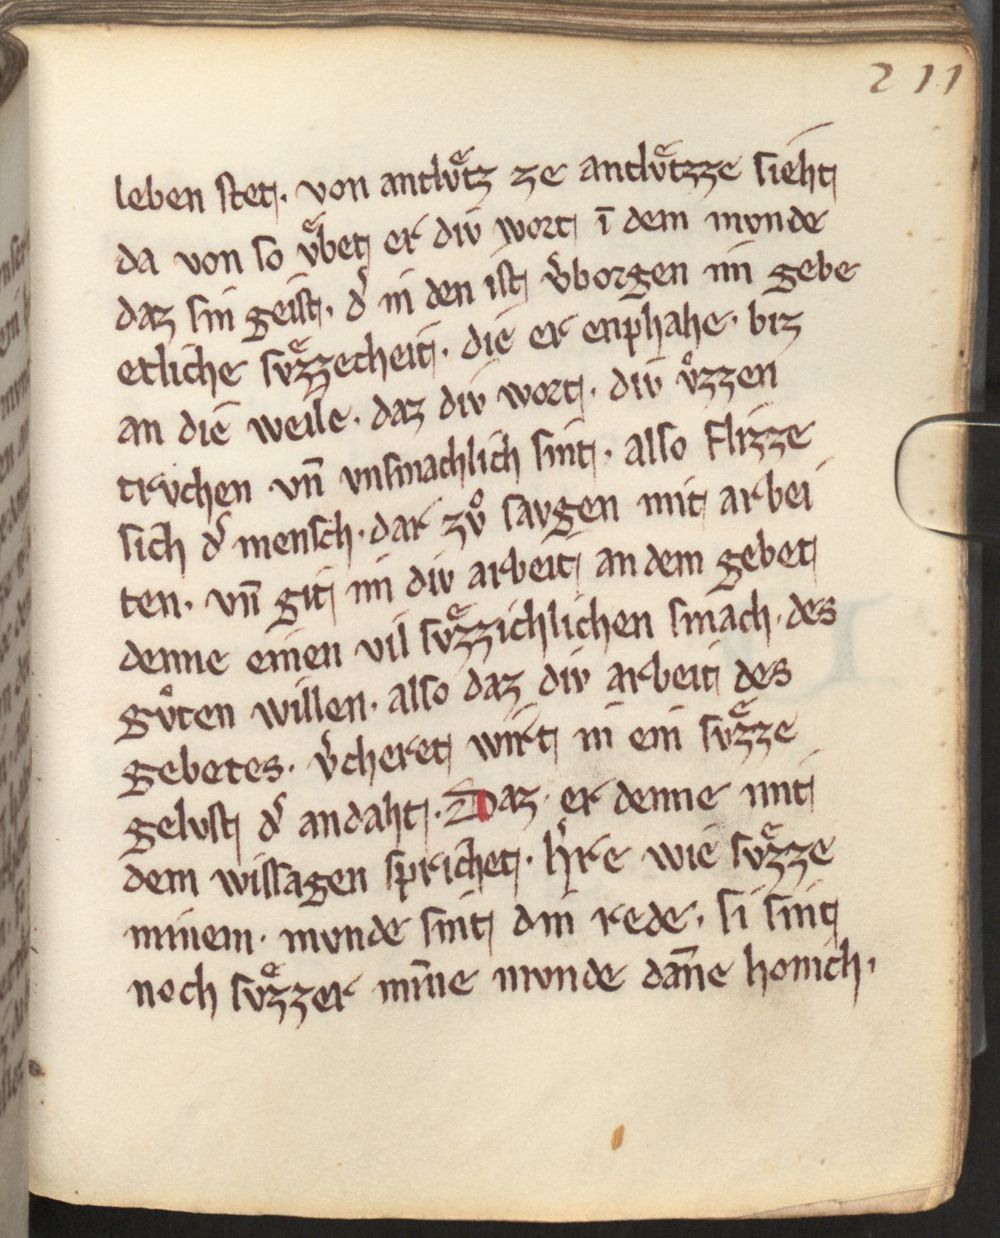 211
leben stet. von antlvͤtz ze antlvͤtzze sieht
da von so vͤbet er div wort ī dem mvnde
daz sin geist. dˀ in den ist vˀborgen im gebe
etliche svͤzzecheit. die er enphahe. biz
an die weile. daz div wort. div vͦzzen
trvchen vn̄ vnsmachlich sint. also flizze
sich dˀ mensch. dar zvͦ savgen mit arbei
ten. vn̄ git im div arbeit an dem gebet
denne einen vil svͤzzichlichen smach. des
gvͦten willen. also daz div arbeit des
gebetes. vˀcheret wirt in ein svͤzze
gelvst dˀ andaht. Daz er denne mit
dem wissagen sprichet. hˀre wie svͤzze
minem. mvnde sint din rede. si sint
noch svͤzzer mīne mvnde dan̄e honich.